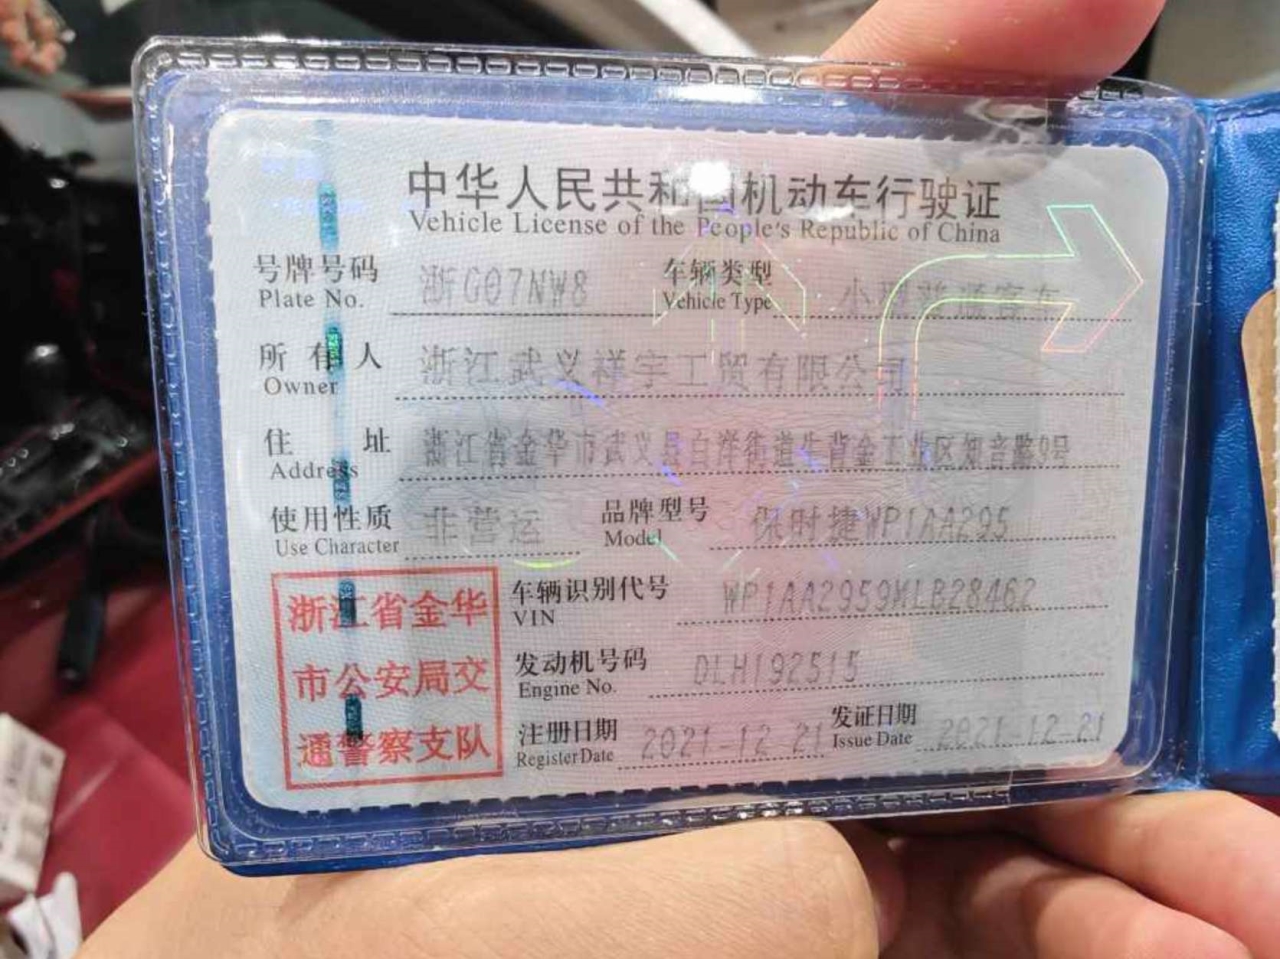 中华人民共和国机动车行驶证
Vehicle License of the People's Republic of China
号牌号码 浙G07NW8 车辆类型 小型普通客车
Plate No. Vehicle Type
所有人 浙江武义祥宇工贸有限公司
Owner
住址 浙江省金华市武义县白洋街道牛背金工业区知音路9号
Address
使用性质 非营运 品牌型号 保时捷WP1AA295
Use Character Model
车辆识别代号 WP1AA2959MLB28462
VIN
发动机号码 DLH192515
Engine No.
注册日期 2021-12-21 发证日期 2021-12-21
Register Date Issue Date
浙江省金华
市公安局交
通警察支队